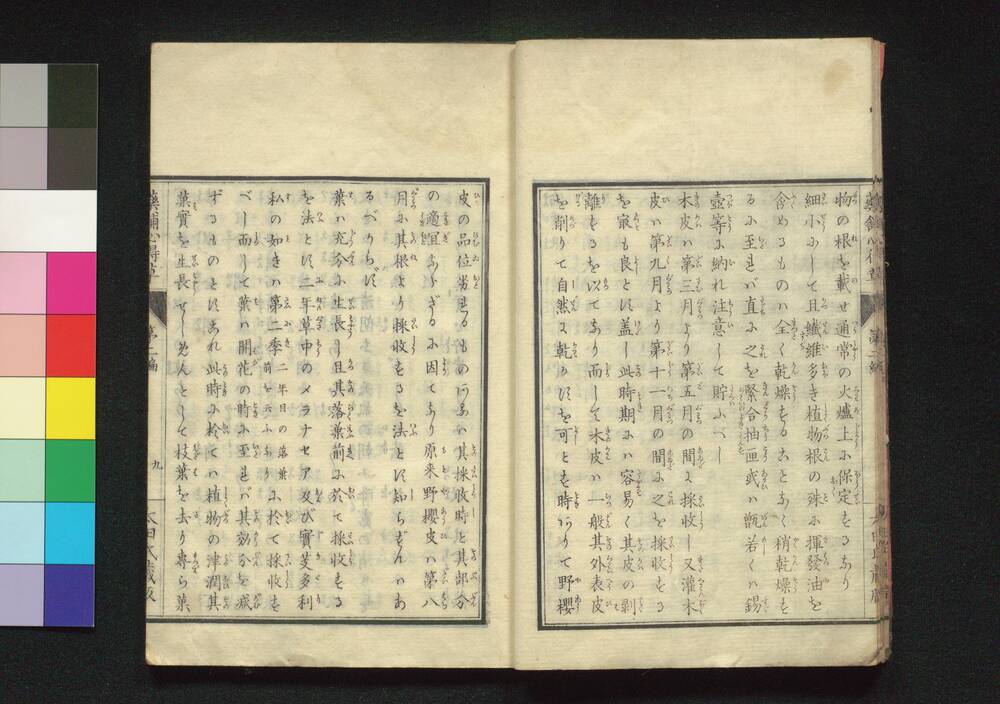 物の根を載せ通常の火爐上に保定をるなり
細小にして且纎維多き植物根の殊に揮發油を
含めるものハ全く乾燥をることあく稍乾燥を
るに至れバ直に之を緊合抽匣或ハ甑若くハ錫
壺等に納れ注意して貯ふべし
木皮ハ第三月より第五月の間に採收し又灌木
皮ハ第九月より第十一月の間に之を採收をる
を㝡も良とに盖し此時期にハ容易く其皮の剥
離をるを以てなり而して木皮ハ一般其外表皮
を削りて自然に乾かすを可とも時ありて野櫻
皮の品位劣れるものあるハ其採收時と其部分
の適宜ならざるに因てなり原来野櫻皮ハ第八
月に其根より採收をるを法とに知らずんハあ
るべからず
葉ハ充分に生長し且其落葉前に於て採收をる
を法とに二年草中のメラナセア及び實芰多利
私の如きハ第二季 二年目の落葉前を云ふなり に於て採收を
べし而して葉ハ開花の時に至れバ其効分を减
ずるものとにこれ此時に於てハ植物の津潤其
菓實を生長せしめんとして枝葉を去り專ら菓
藥舗心得草 第二編 九 太田氏藏版